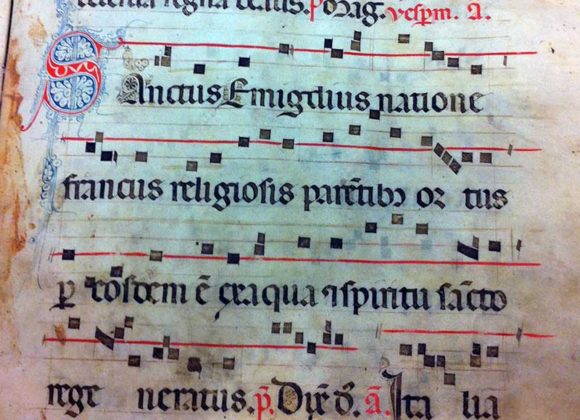 regna celius. p̄orag. vesp̄m. a.
Sanctus Emigdius natione
francus religiosis parētibꝫ or tus
ꝑ eosdem ē ex aqua ⁊ spiritu sācto
rege neratus. p̄. Dix̄ d̄. ā. Ita lia